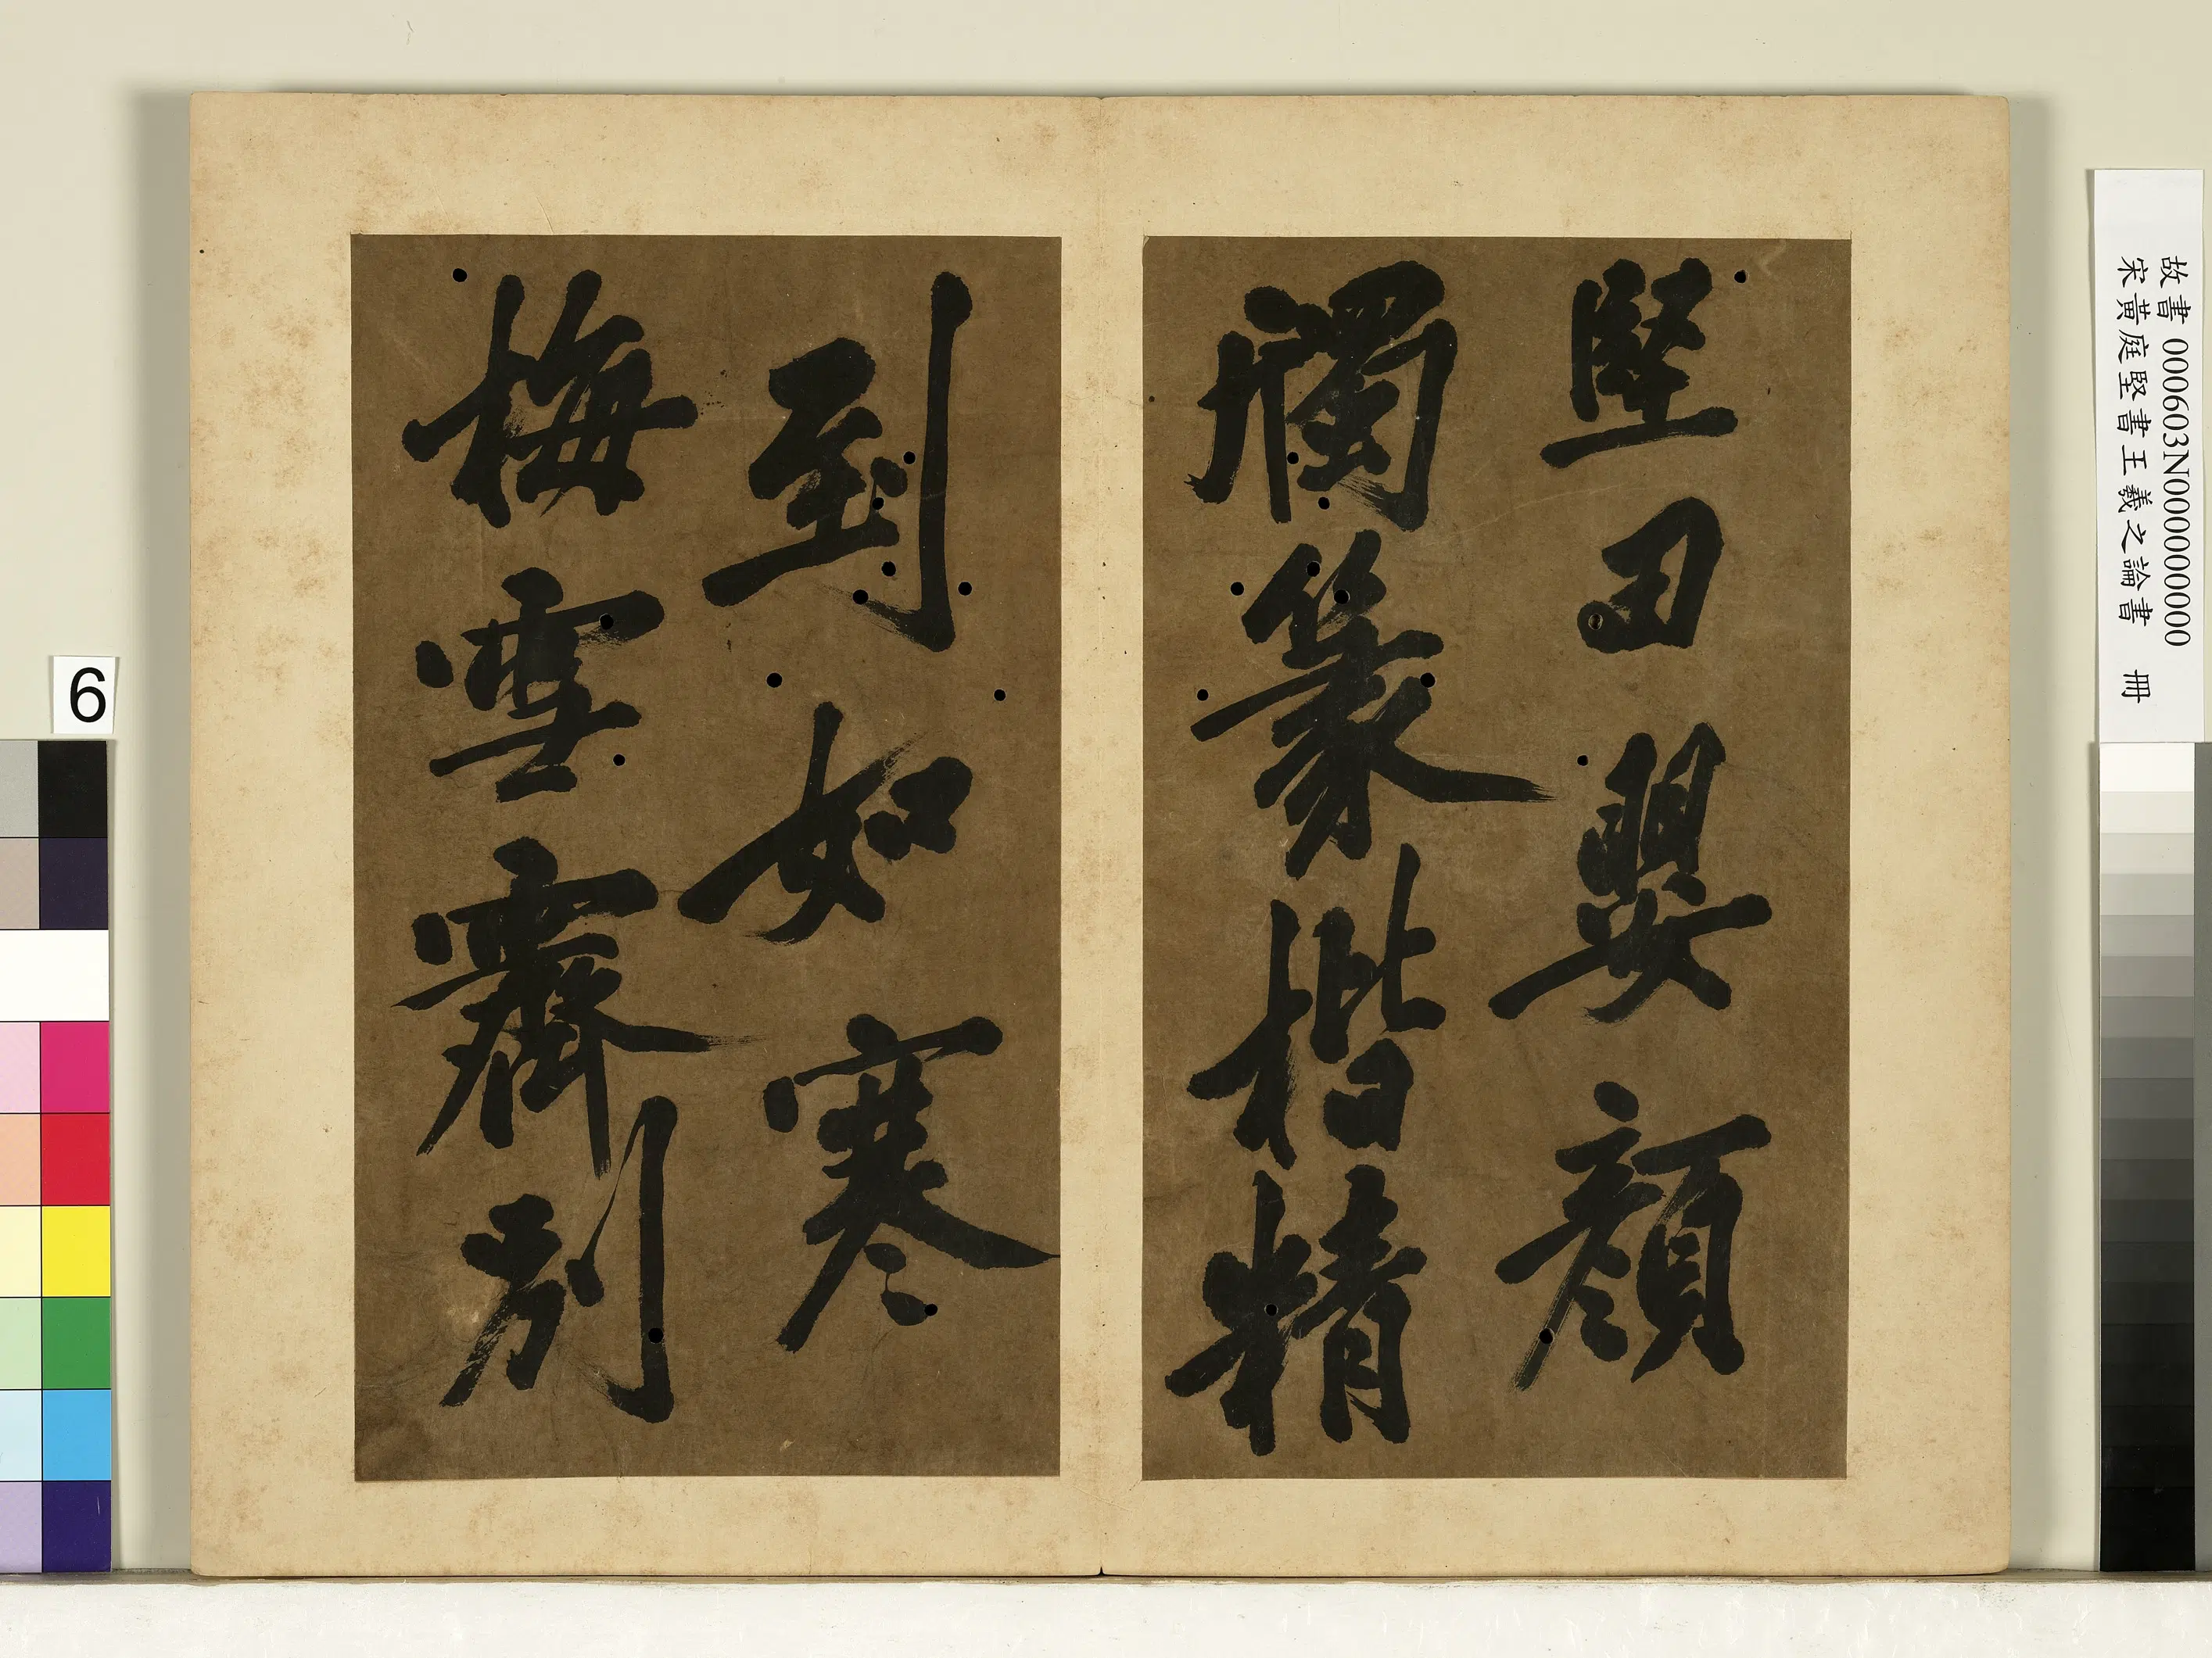 堅嬰顏
篆楷精
到如寒
梅雪霽別
故書 000603N000000000
宋黃庭堅書王羲之論書 冊
6